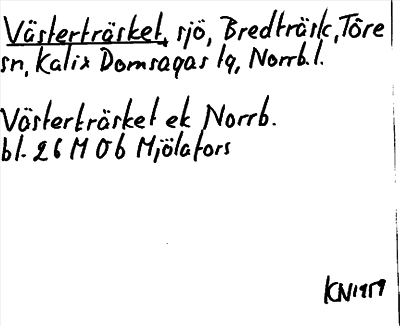 Västerträsket, sjö, Bredträsk, Töre
sn, Kalix Domsagas lg, Norrb.l.
Västerträsket ek Norrb.
bl. 26 M 0b Mjölafors
KN1959